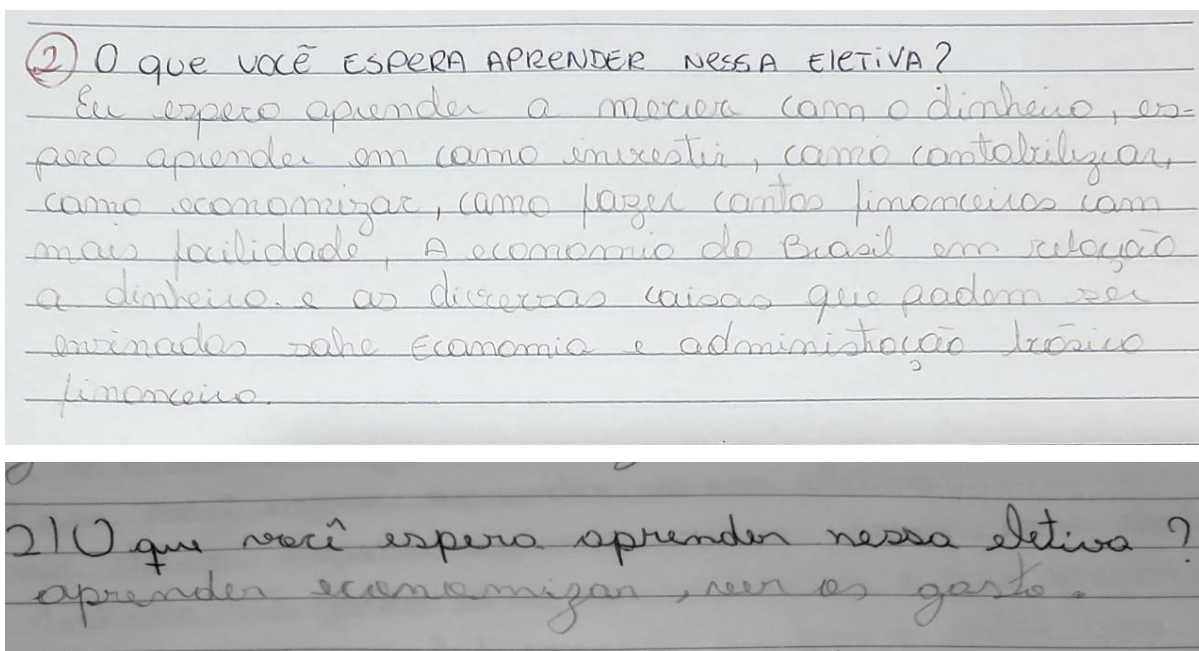 2) O que você ESPERA APRENDER NESSA ELETIVA?
Eu espero aprender a mexer com o dinheiro, es-
pero aprender em como investir, como contabilizar,
como economizar, como fazer contas financeiras com
mais facilidade, A economia do Brasil em relação
a dinheiro. e as diversas coisas que podem ser
ensinadas sobre Economia e administração básico
financeiro.
2) O que você espera aprender nessa eletiva?
aprender economizar, ver os gasto.